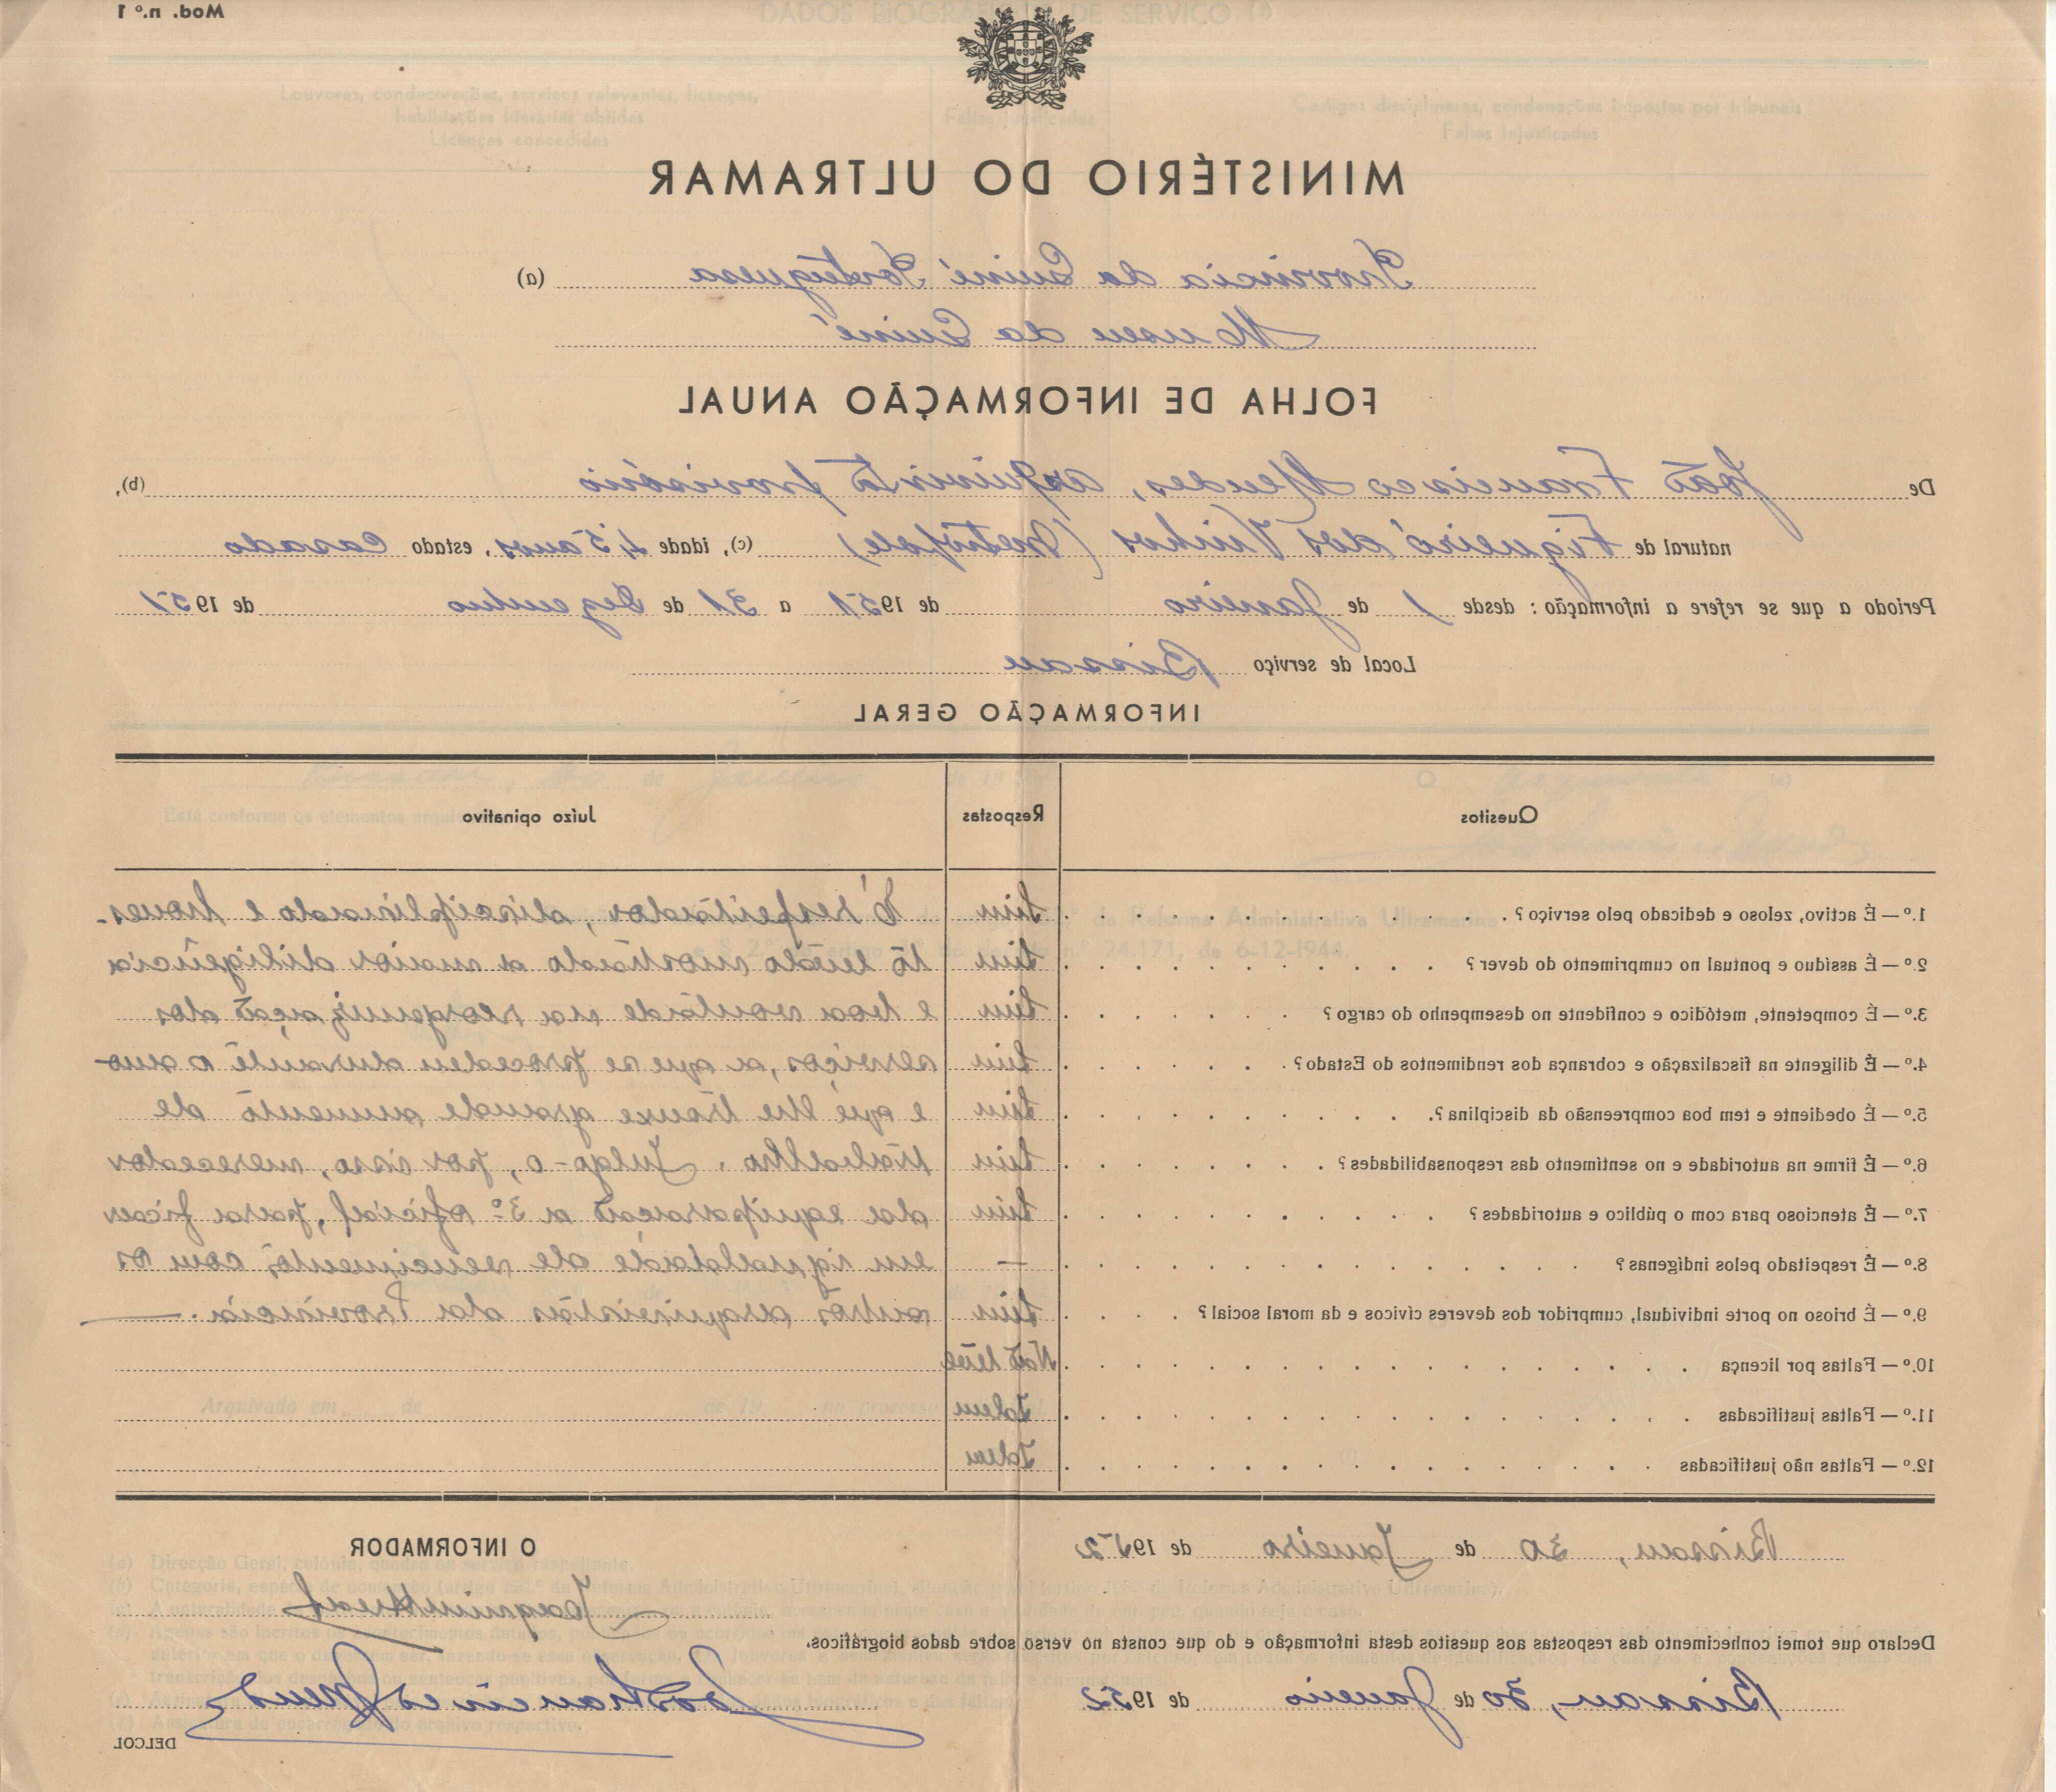 Mod. n.º 1
MINISTÉRIO DO ULTRAMAR
Provincia da Guiné Portuguesa (a)
Museu da Guiné
FOLHA DE INFORMAÇÃO ANUAL
De João Francisco Mendes, arquivista provisório (b),
natural de Figueiró dos Vinhos (Metrópole) (c), idade 45 anos, estado Casado
Periodo a que se refere a informação: desde 1 de Janeiro de 1951 a 31 de Dezembro de 1951
Local de serviço Bissau
INFORMAÇÃO GERAL
Quesitos Respostas Juízo opinativo
1.º — É activo, zeloso e dedicado pelo serviço? Sim É respeitador, disciplinado e hones-
2.º — É assíduo e pontual no cumprimento do dever? Sim to tendo mostrado a maior diligência
3.º — É competente, metódico e confidente no desempenho do cargo? Sim e boa vontade na reorganização dos
4.º — É diligente na fiscalização e cobrança dos rendimentos do Estado? Sim serviços, a que se procedeu durante o ano
5.º — É obediente e tem boa compreensão da disciplina? Sim e que lhe trouxe grande aumento de
6.º — É firme na autoridade e no sentimento das responsabilidades? Sim trabalho. Julgo-o, por isso, merecedor
7.º — É atencioso para com o público e autoridades? Sim da equiparação a 3.º oficial, para ficar
8.º — É respeitado pelos indígenas? — em igualdade de vencimentos com os
9.º — É brioso no porte individual, cumpridor dos deveres cívicos e da moral social? Sim outros arquivistas da Provincia.
10.º — Faltas por licença Não teve
11.º — Faltas justificadas Idem
12.º — Faltas não justificadas Idem
Bissau, 30 de Janeiro de 1952
O INFORMADOR
Declaro que tomei conhecimento das respostas aos quesitos desta informação e do que consta no verso sobre dados biográficos.
Bissau, 30 de Janeiro de 1952
João Francisco Mendes
DELCOL
DADOS BIOGRÁFICOS DE SERVIÇO
Louvores, condecorações, serviços relevantes, licenças,
habilitações literárias obtidas
Licenças concedidas
Faltas justificadas
Castigos disciplinares, condenações impostas por tribunais
Faltas injustificadas